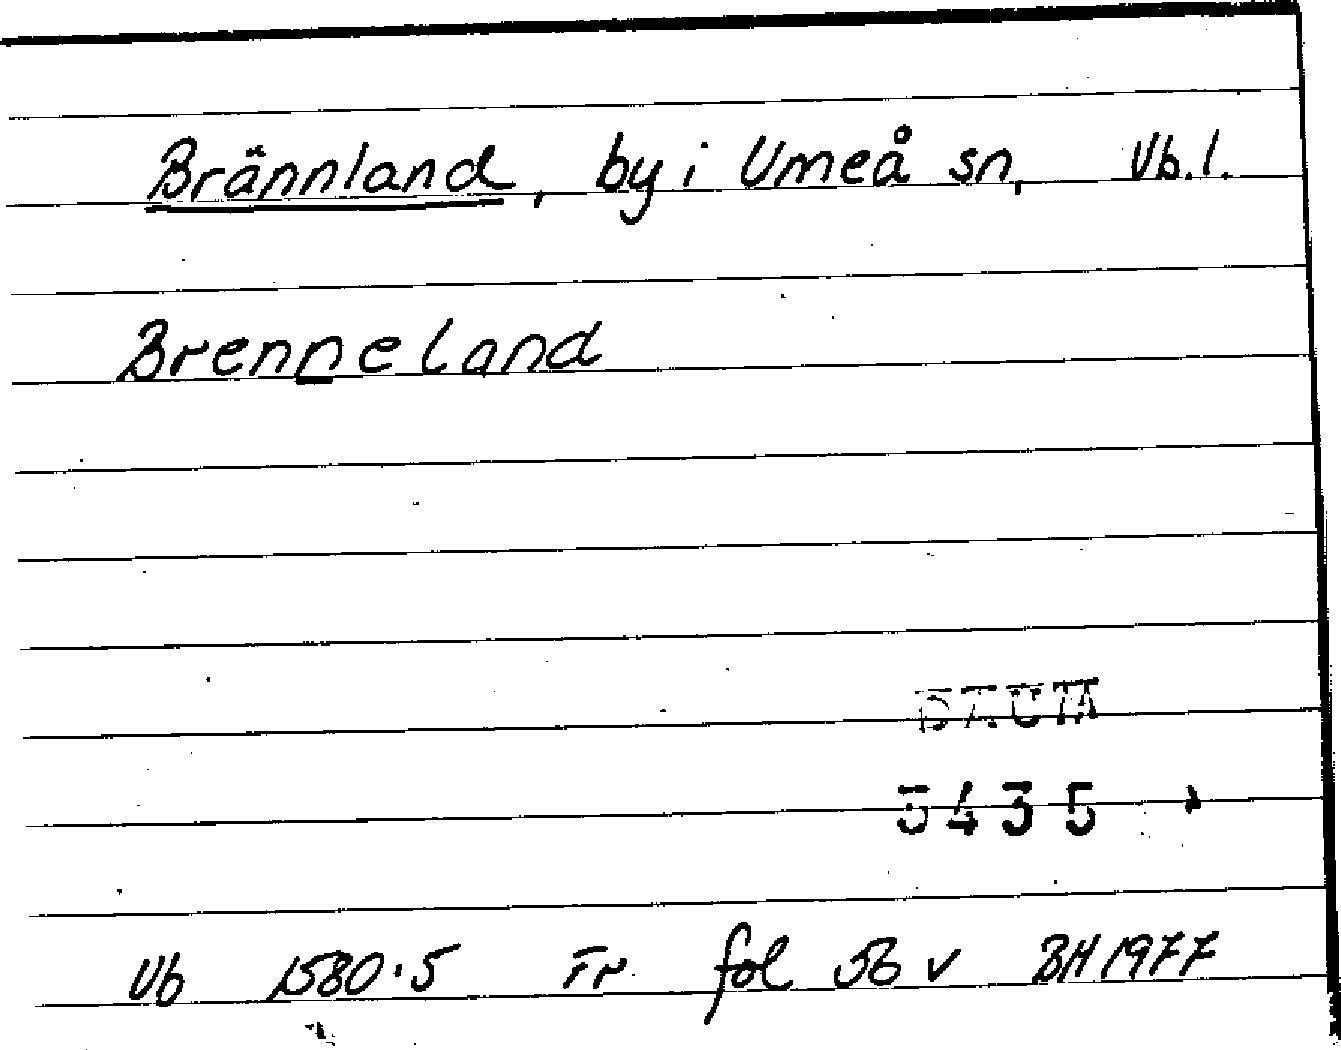 Brännland, by i Umeå sn, Vb. l.
Brenneland
DAUM
5435
Vb 1580.5 Fr. fol 56 v BH 1977